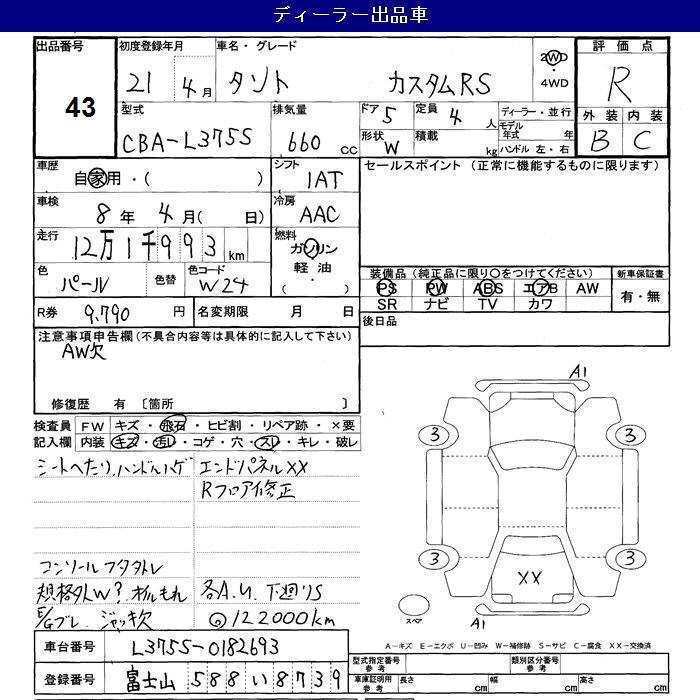 ディーラー出品車
出品番号 43
初度登録年月 21 4月
車名・グレード タント カスタムRS
2WD・4WD
評価点 R
外装 B 内装 C
型式 CBA-L375S
排気量 660 cc
ドア 5 定員 4 人
形状 W 積載 kg
ディーラー・並行
モデル年式 年
ハンドル 左・右
車歴 自家用・( )
シフト 1AT
セールスポイント(正常に機能するものに限ります)
車検 8年 4月( 日)
冷房 AAC
走行 12万1千993 km
燃料 ガソリン・軽油・( )
色 パール 色替 色コード W24
装備品(純正品に限り○をつけてください) 新車保証書
PS PW ABS エアB AW 有・無
SR ナビ TV カワ
R券 9,790 円 名変期限 月 日
後日品
注意事項申告欄(不具合内容等は具体的に記入して下さい)
AW欠
修復歴 有 〔箇所 〕
検査員 FW キズ・飛石・ヒビ割・リペア跡・×要
記入欄 内装 キズ・汚レ・コゲ・穴・スレ・キレ・破レ
シートへたり、ハンドルハゲ エンドパネルXX
Rフロア修正
コンソールフタタレ
規格外W? オイルもれ 各A.U. 下廻りS
E/Gブレ ジャッキ欠 ◎122000km
A1
3 3
3 3
XX
スペア A1
A-キズ E-エクボ U-凹み W-補修跡 S-サビ C-腐食 XX-交換済
車台番号 L375S-0182693
型式指定番号 参考 類別区分番号 参考
登録番号 富士山 588 い 8739
車庫証明用 参考 長さ cm 幅 cm 高さ cm